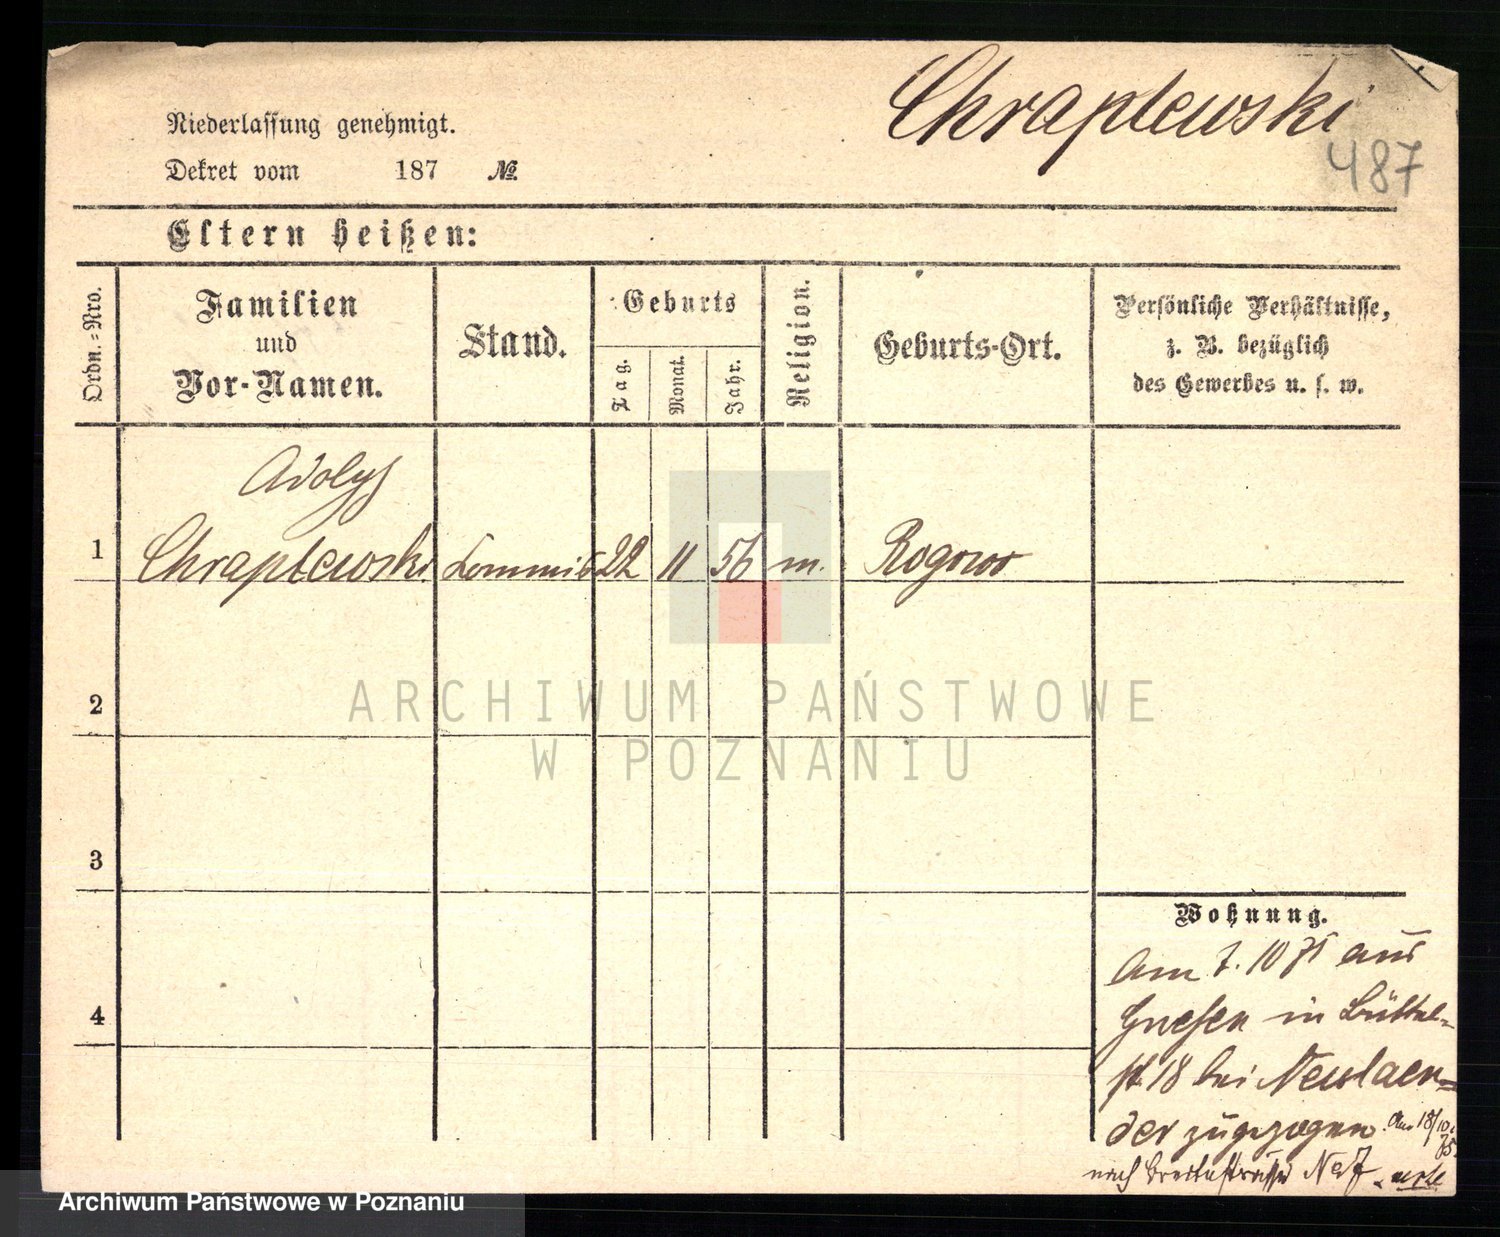 Chraplewski
487
Niederlassung genehmigt.
Dekret vom 187 №
Eltern heißen:
Ordn.=Nro.
Familien
und
Vor-Namen.
Stand.
Geburts
Tag.
Monat.
Jahr.
Religion.
Geburts-Ort.
Persönliche Verhältnisse,
z. B. bezüglich
des Gewerbes u. s. w.
Adolph
1 Chraplewski Commis 22 11 56 m. Rogowo
2
3
4
Wohnung.
Am 7. 10 75 aus
Gnesen in Büttel=
st. 18 bei Neulaen=
der zugezogen. Am 18/10.
75.
nach Breitestrasse No 7
ARCHIWUM PAŃSTWOWE
W POZNANIU
Archiwum Państwowe w Poznaniu